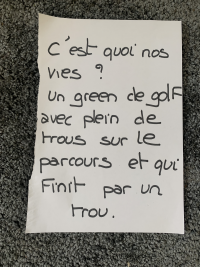 C'est quoi nos
vies ?
un green de golf
avec plein de
trous sur le
parcours et qui
finit par un
trou.